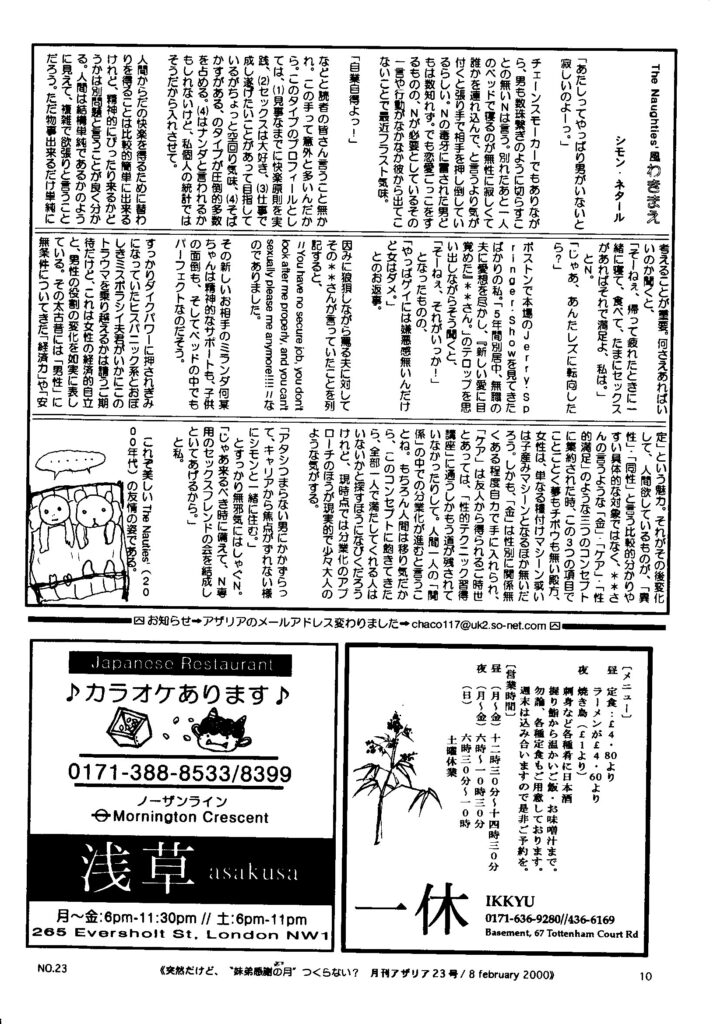 The Naughties' 風わきまえ
シモン・ネタール
「あたしってやっぱり男がいないと
寂しいのよーっ。」
チェーンスモーカーでもありなが
ら、男も数珠繋ぎのように切らすこ
との無いNは言う。別れたあと一人
のベッドで寝るのが無性に寂しくて
誰かを連れ込んで、と言うより気が
付くと張り手で相手を押し倒してい
るらしい。Nの毒牙に霞された男ど
もは数知れず。でも恋愛ごっこをす
るものの、Nが必要としているその
一言や行動がなかなか彼から出てこ
ないことで最近フラスト気味。
「自業自得よっ！」
などと読者の皆さん言うこと無か
れ。この手って意外と多いんだか
ら。このタイプのプロフィールとし
ては、(1)見事なまでに快楽原則を実
践、(2)セックスは大好き、(3)仕事で
成し遂げたいことがあって目指して
いるがちょっと空回り気味、(4)そば
かすがある、のタイプが圧倒的多数
を占める。(4)はナンダと言われるか
もしれないけど、私個人の統計では
そうだから入れさせて。
人間からだの快楽を得るために替わ
りを得ることは比較的簡単に出来る
けれど、精神的にぴったり来るかど
うかは別問題と言うことが良く分か
る。人間は結構単純であるかのよう
に見えて、複雑で欲張りと言うこと
だろう。ただ物事出来るだけ単純に
考えることが重要。何さえあればい
いのか聞くと、
「そーねぇ、帰って疲れたときに一
緒に寝て、食べて、たまにセックス
があればそれで満足よ、私は。」
とN。
「じゃあ、あんたレズに転向した
ら？」
ボストンで本場のJerry Sp
ringer Showを見てきた
ばかりの私。「5年間別居中、無職の
夫に愛想を尽かし、『新しい愛に目
覚めた』＊＊さん。」のテロップを思
い出しながらそう聞くと、
「そーねぇ、それがいっか！」
となったものの、
「やっぱゲイには嫌悪感無いんだけ
ど女はダメ。」
とのお返事。
因みに狼狽しながら罵る夫に対して
その＊＊さんが言っていたことを列
記すると、
//You have no secure job, you don't
look after me properly, and you can't
sexually please me anymore!!!!//な
のでありました。
その新しいお相手のミランダ何某
ちゃんは精神的なサポートも、子供
の面倒も、そしてベッドの中でも
パーフェクトなのだそう。
すっかりダイクパワーに押されぎみ
になっていたヒスパニック系とおぼ
しきミスボラシイ夫君がいかにこの
トラウマを乗り越えるかは請うご期
待だけど、これは女性の経済的自立
と、男性の役割の変化を如実に表し
ている。その太古昔には「男性」に
無条件についてきた「経済力」や「安
定」という魅力。それがその後変化
して、人間欲しているものが、「異
性」・「同性」と言う比較的分かりや
すい具体的な対象ではなく、＊＊さ
んの言うような「金」・「ケア」・「性
的満足」のような三つのコンセプト
に集約された時、この3つの項目で
ことごとく夢もチボウも無い殿方、
女性は、単なる種付けマシーン或い
は子産みマシーンとなるほか無いだ
ろう。しかも、「金」は性別に関係無
くある程度自力で手に入れられ、
「ケア」は友人から得られるご時世
とあっては、「性的テクニック習得
講座」に通うしかもう道が残されて
いなかったりして。人間一人の「関
係」の中での分業化が進むと言うこ
とね。もちろん人間は移り気だか
ら、このコンセプトに飽きてきた
ら、全部一人で満たしてくれる人は
いないかと探すほうになびくだろう
けれど、現時点では分業化のアプ
ローチのほうが現実的で少々大人の
ような気がする。
「アタシつまらない男にかかずらっ
て、キャリアから焦点がずれない様
にシモンと一緒に住む。」
とすっかり無邪気にはしゃぐN。
「じゃあ来るべき時に備えて、N専
用のセックスフレンドの会を結成し
といてあげるから。」
と私。
これぞ美しいThe Naughties' (20
00年代) の友情の姿である。
お知らせ→アザリアのメールアドレス変わりました→chaco117@uk2.so-net.com
Japanese Restaurant
♪カラオケあります♪
0171-388-8533/8399
ノーザンライン
Mornington Crescent
浅草 asakusa
月～金:6pm-11:30pm // 土:6pm-11pm
265 Eversholt St, London NW1
[メニュー]
昼 定食：£4・80より
ラーメンが£4・60より
夜 焼き鳥（£1より）
刺身など各種肴に日本酒
握り鮨から温かいご飯・お味噌汁まで。
勿論、各種定食もご用意しております。
週末は込み合いますので是非ご予約を。
[営業時間]
昼 (月～金) 十二時三〇分～十四時三〇分
夜 (月～金) 六時～一〇時三〇分
(日) 六時三〇分～一〇時
土曜休業
一休
IKKYU
0171-636-9280//436-6169
Basement, 67 Tottenham Court Rd
NO.23
《突然だけど、“妹弟感謝の月” つくらない？ 月刊アザリア23号/8 february 2000》
10